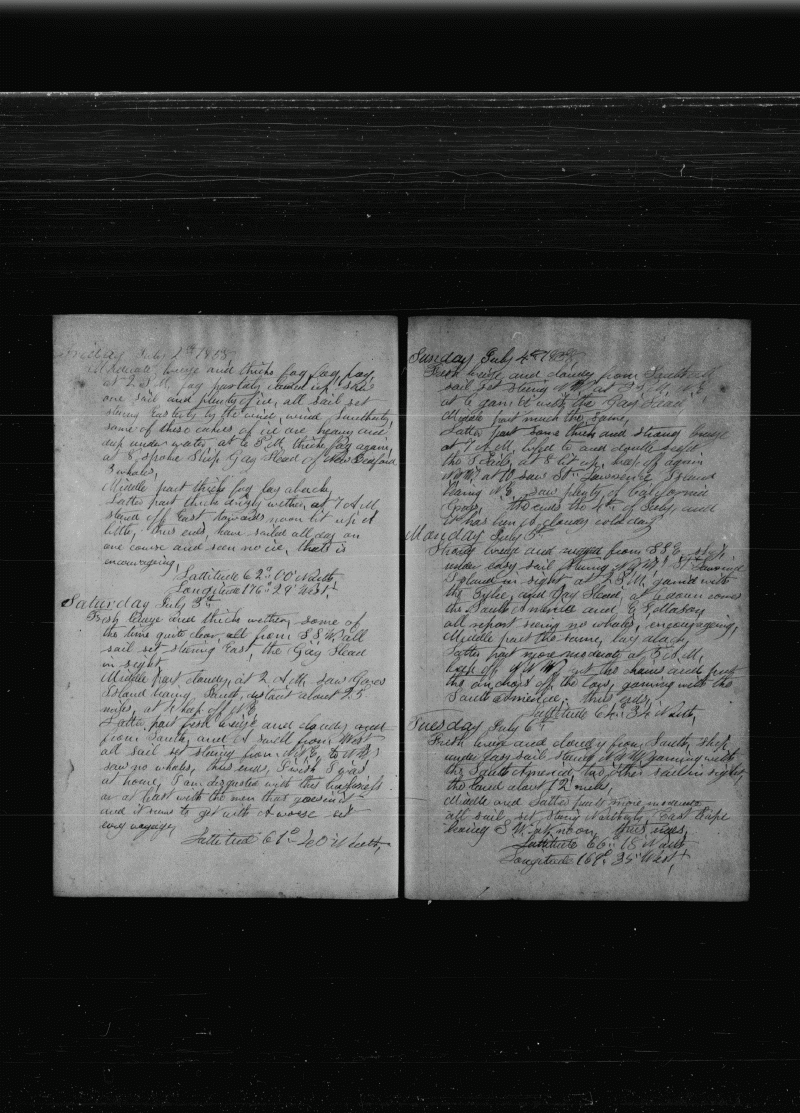 Friday July 2nd 1858
Moderate breeze and thick fog fog fog,
at 2 P.M. fog partly cleared up, saw
one sail and plenty of ice, all sail set
stering Easterly by the wind, wind Southerly,
some of these cakes of ice are heavy and
deep under water, at 6 P.M. thick fog again,
at 8 spoke Ship Gay Head of New Bedford
3 whales,
Middle part thick fog lay aback,
Latter part thick drizly wether, at 7 A.M.
stered off East towards noon lit up a
little, thus ends, have sailed all day on
one course and seen no ice, that is
encouraging,
Lattitude 62° 00' North
Longitude 176° 29' West
Saturday July 3rd
Fresh breeze and thick wether, some of
the time quite clear, all from S.S.W. all
sail set stering East, the Gay Head
in sight
Middle part cloudy, at 2 A.M. saw Gores
Island bearing South, distant about 25
miles, at kept off N.E.
Latter part fresh breeze and cloudy
from South, and A swell from West
all sail set stering from N.E. to N.
saw no whales, thus ends, I wish I was
at home, I am disgusted with this business
or at least with the men that
and it seems to get with A worse set
every voyage,
Lattitude 61° 40' North,
Sunday July 4th 1858
Fresh breeze and cloudy from South all
sail set stering at 3 P.M. N.E.
at 6 gam'd with the Gay Head
Middle part much the same,
Latter part some thick and strong breeze
at 7 A.M. luf'd to and double reef'd
the T sails, at 8 lit up, kept off again
at 10 saw St. Lawrence Island
bearing N.E. saw plenty of
thus ends the 4th of July, and
it has been A cloudy cold day
Monday July 5th
Strong breeze and from S.S.E.
under easy sail stering St. Lawrence
Island in sight at 2 P.M. gam'd with
the and Gay Head, at 6 down comes
the South America and
all report seeing no whales, encouraging,
Middle part the same, lay aback,
Latter part more moderate at 3 A.M.
kept off got the chains and
the anchors off the bow, gaming with the
South America, thus ends,
Lattitude 64° 34' North,
Tuesday July 6th
Fresh breeze and cloudy from South, ship
under easy sail stered gaming with
the South America, two other sails in sight,
the land about 12 miles,
Middle and Latter parts more moderate
all sail set, stering Northerly, East Cape
bearing S.W. at noon, thus ends,
Lattitude 66° 18' North
Longitude 169° 35' West,